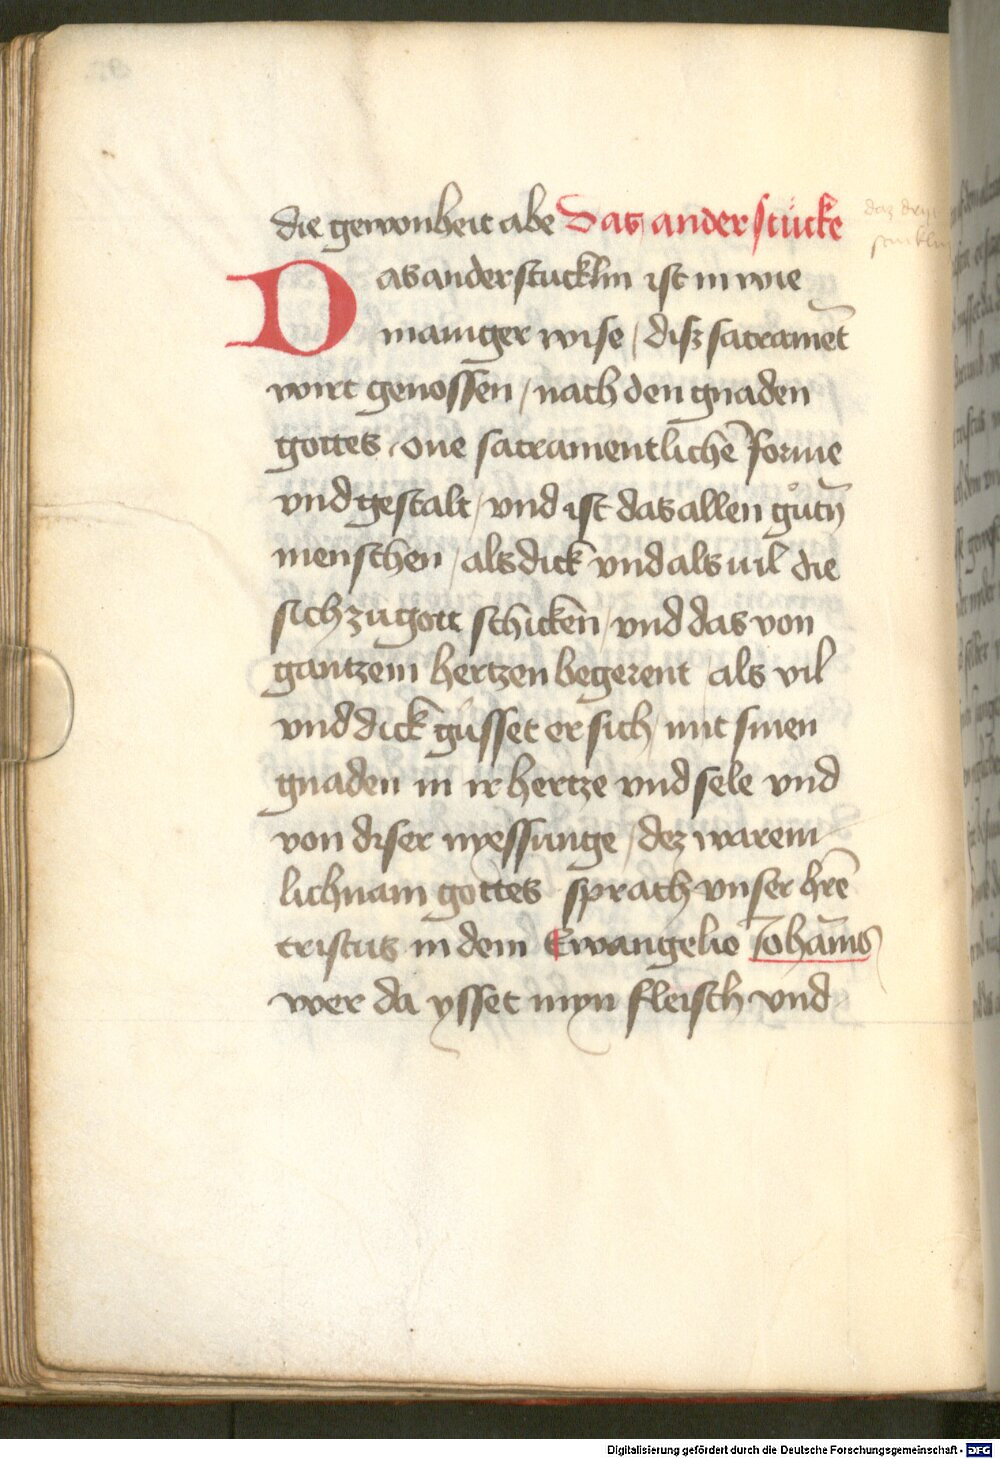 die gewonheit abe Das ander stücke
Das ander stucklin ist in wie
maniger wise / disz sacramēt
wirt genossen / nach den gnaden
gottes / one sacramentlichē forme
vnd gestalt / vnd ist das allen gůtē
menschen / als dick vnd als uil die
sich zu gott schicken / vnd das von
gantzem hertzen begerent / als vil
vnd dick güsset er sich / mit sinen
gnaden in ir hertze vnd sele vnd
von diser nyessunge / dez warem
lichnam gottes sprach vnser hrē
cristus in dem Ewangelio Iohānis
wer da ysset myn fleisch vnd
daz
stucklin
Digitalisierung gefördert durch die Deutsche Forschungsgemeinschaft - DFG